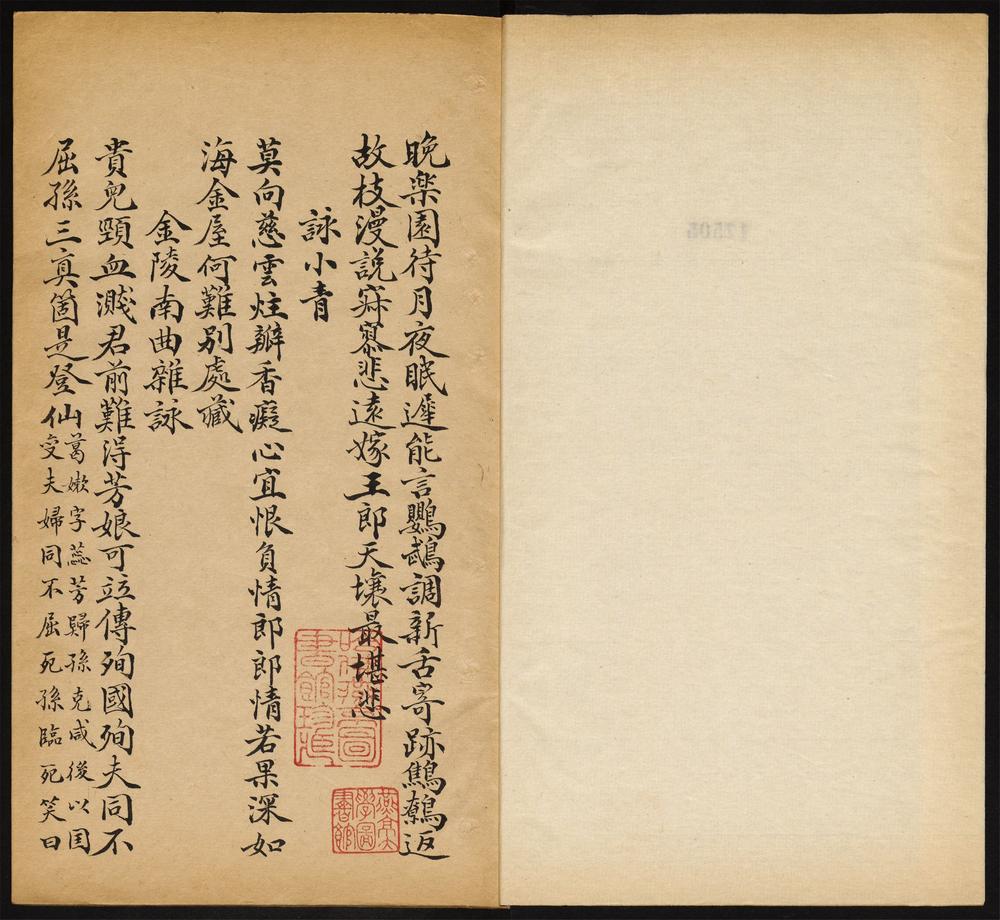 晚楽園待月夜眠遲能言鸚鵡調新舌寄跡鷦鷯返
故枝漫説寂寥悲遠嫁王郎天壤最堪悲
詠小青
莫向慈雲炷瓣香癡心宜恨負情郎郎情若果深如
海金屋何難别處藏
金陵南曲雜詠
貴兒頸血濺君前難得芳娘可立傳殉國殉夫同不
屈孫三眞箇是登仙
葛嫩字蕊芳歸孫克咸後以国
变夫婦同不屈死孫臨死笑曰
燕京大
學圖
書館